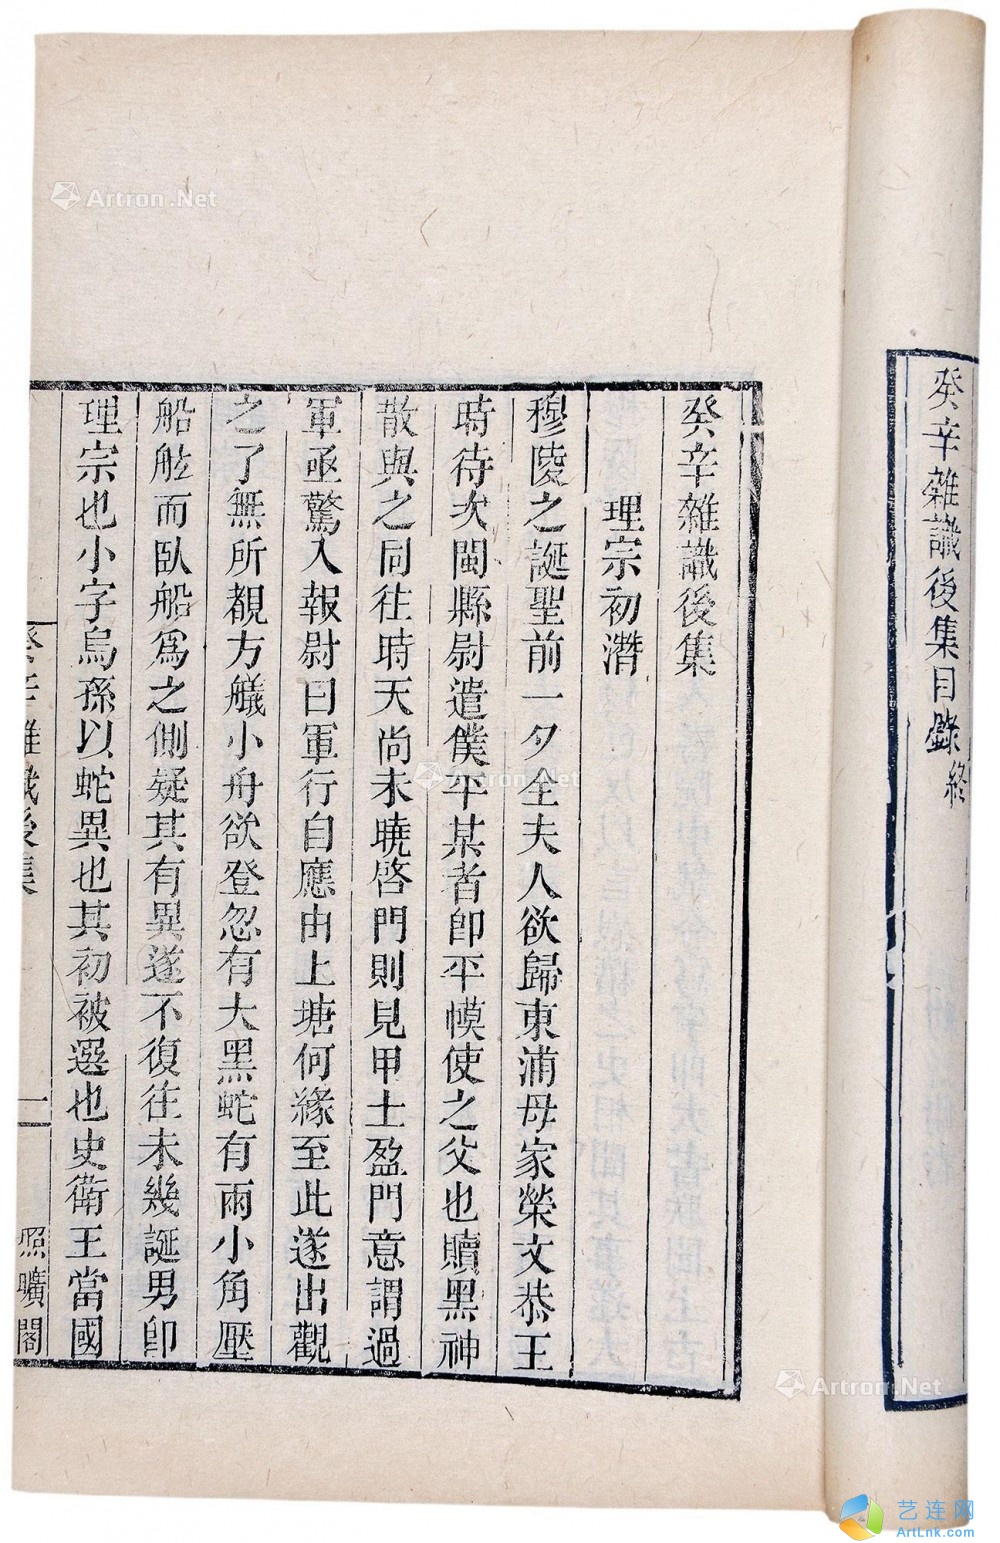 癸辛雜識後集目錄終
癸辛雜識後集
理宗初潛
穆陵之誕聖前一夕全夫人欲歸東浦母家榮文恭王
時待次閩縣尉遣僕平某者卽平幙使之父也贖黑神
散與之同往時天尚未曉啓門則見甲士盈門意謂過
軍亟驚入報尉曰軍行自應由上塘何緣至此遂出觀
之了無所覩方艤小舟欲登忽有大黑蛇有兩小角壓
船舷而臥船為之側疑其有異遂不復往未幾誕男卽
理宗也小字烏孫以蛇異也其初被選也史衛王當國
癸辛雜識後集
一
照曠閣
Artron.Net
Artron.Net
Artron.Net
艺连网
ArtLnk.com